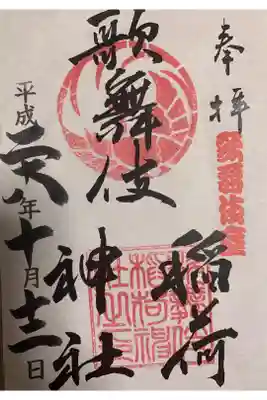 奉拝
歌舞伎座
歌舞伎
稲荷
神社
歌舞伎
稲荷神
社之印
平成二十八年十月十三日